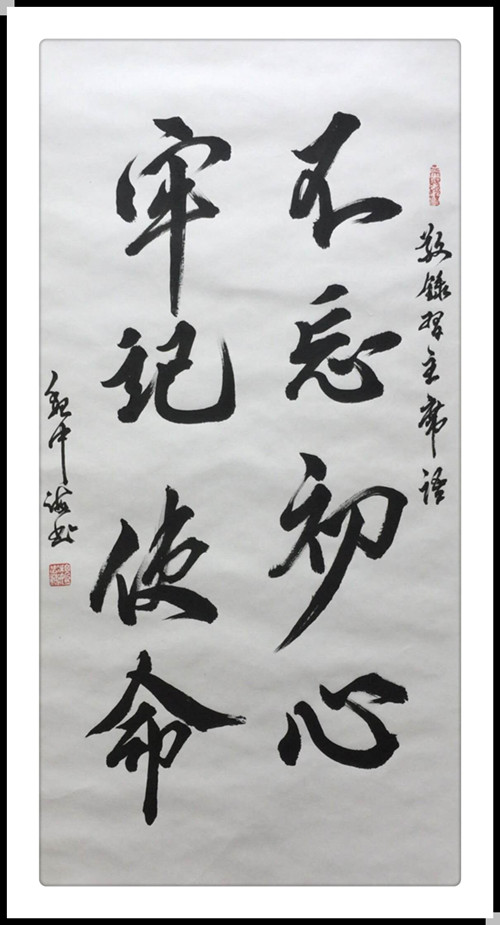 敬録習主席語
不忘初心
牢记使命